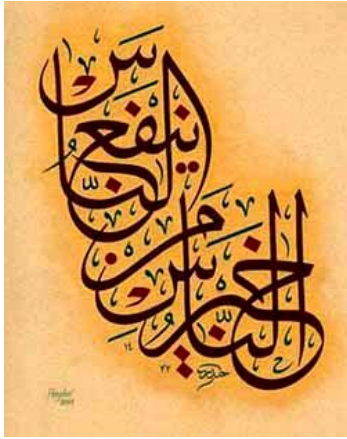 خَيْرُ النَّاسِ
مَنْ
يَنْفَعُ النَّاسَ
١٤
٢٢